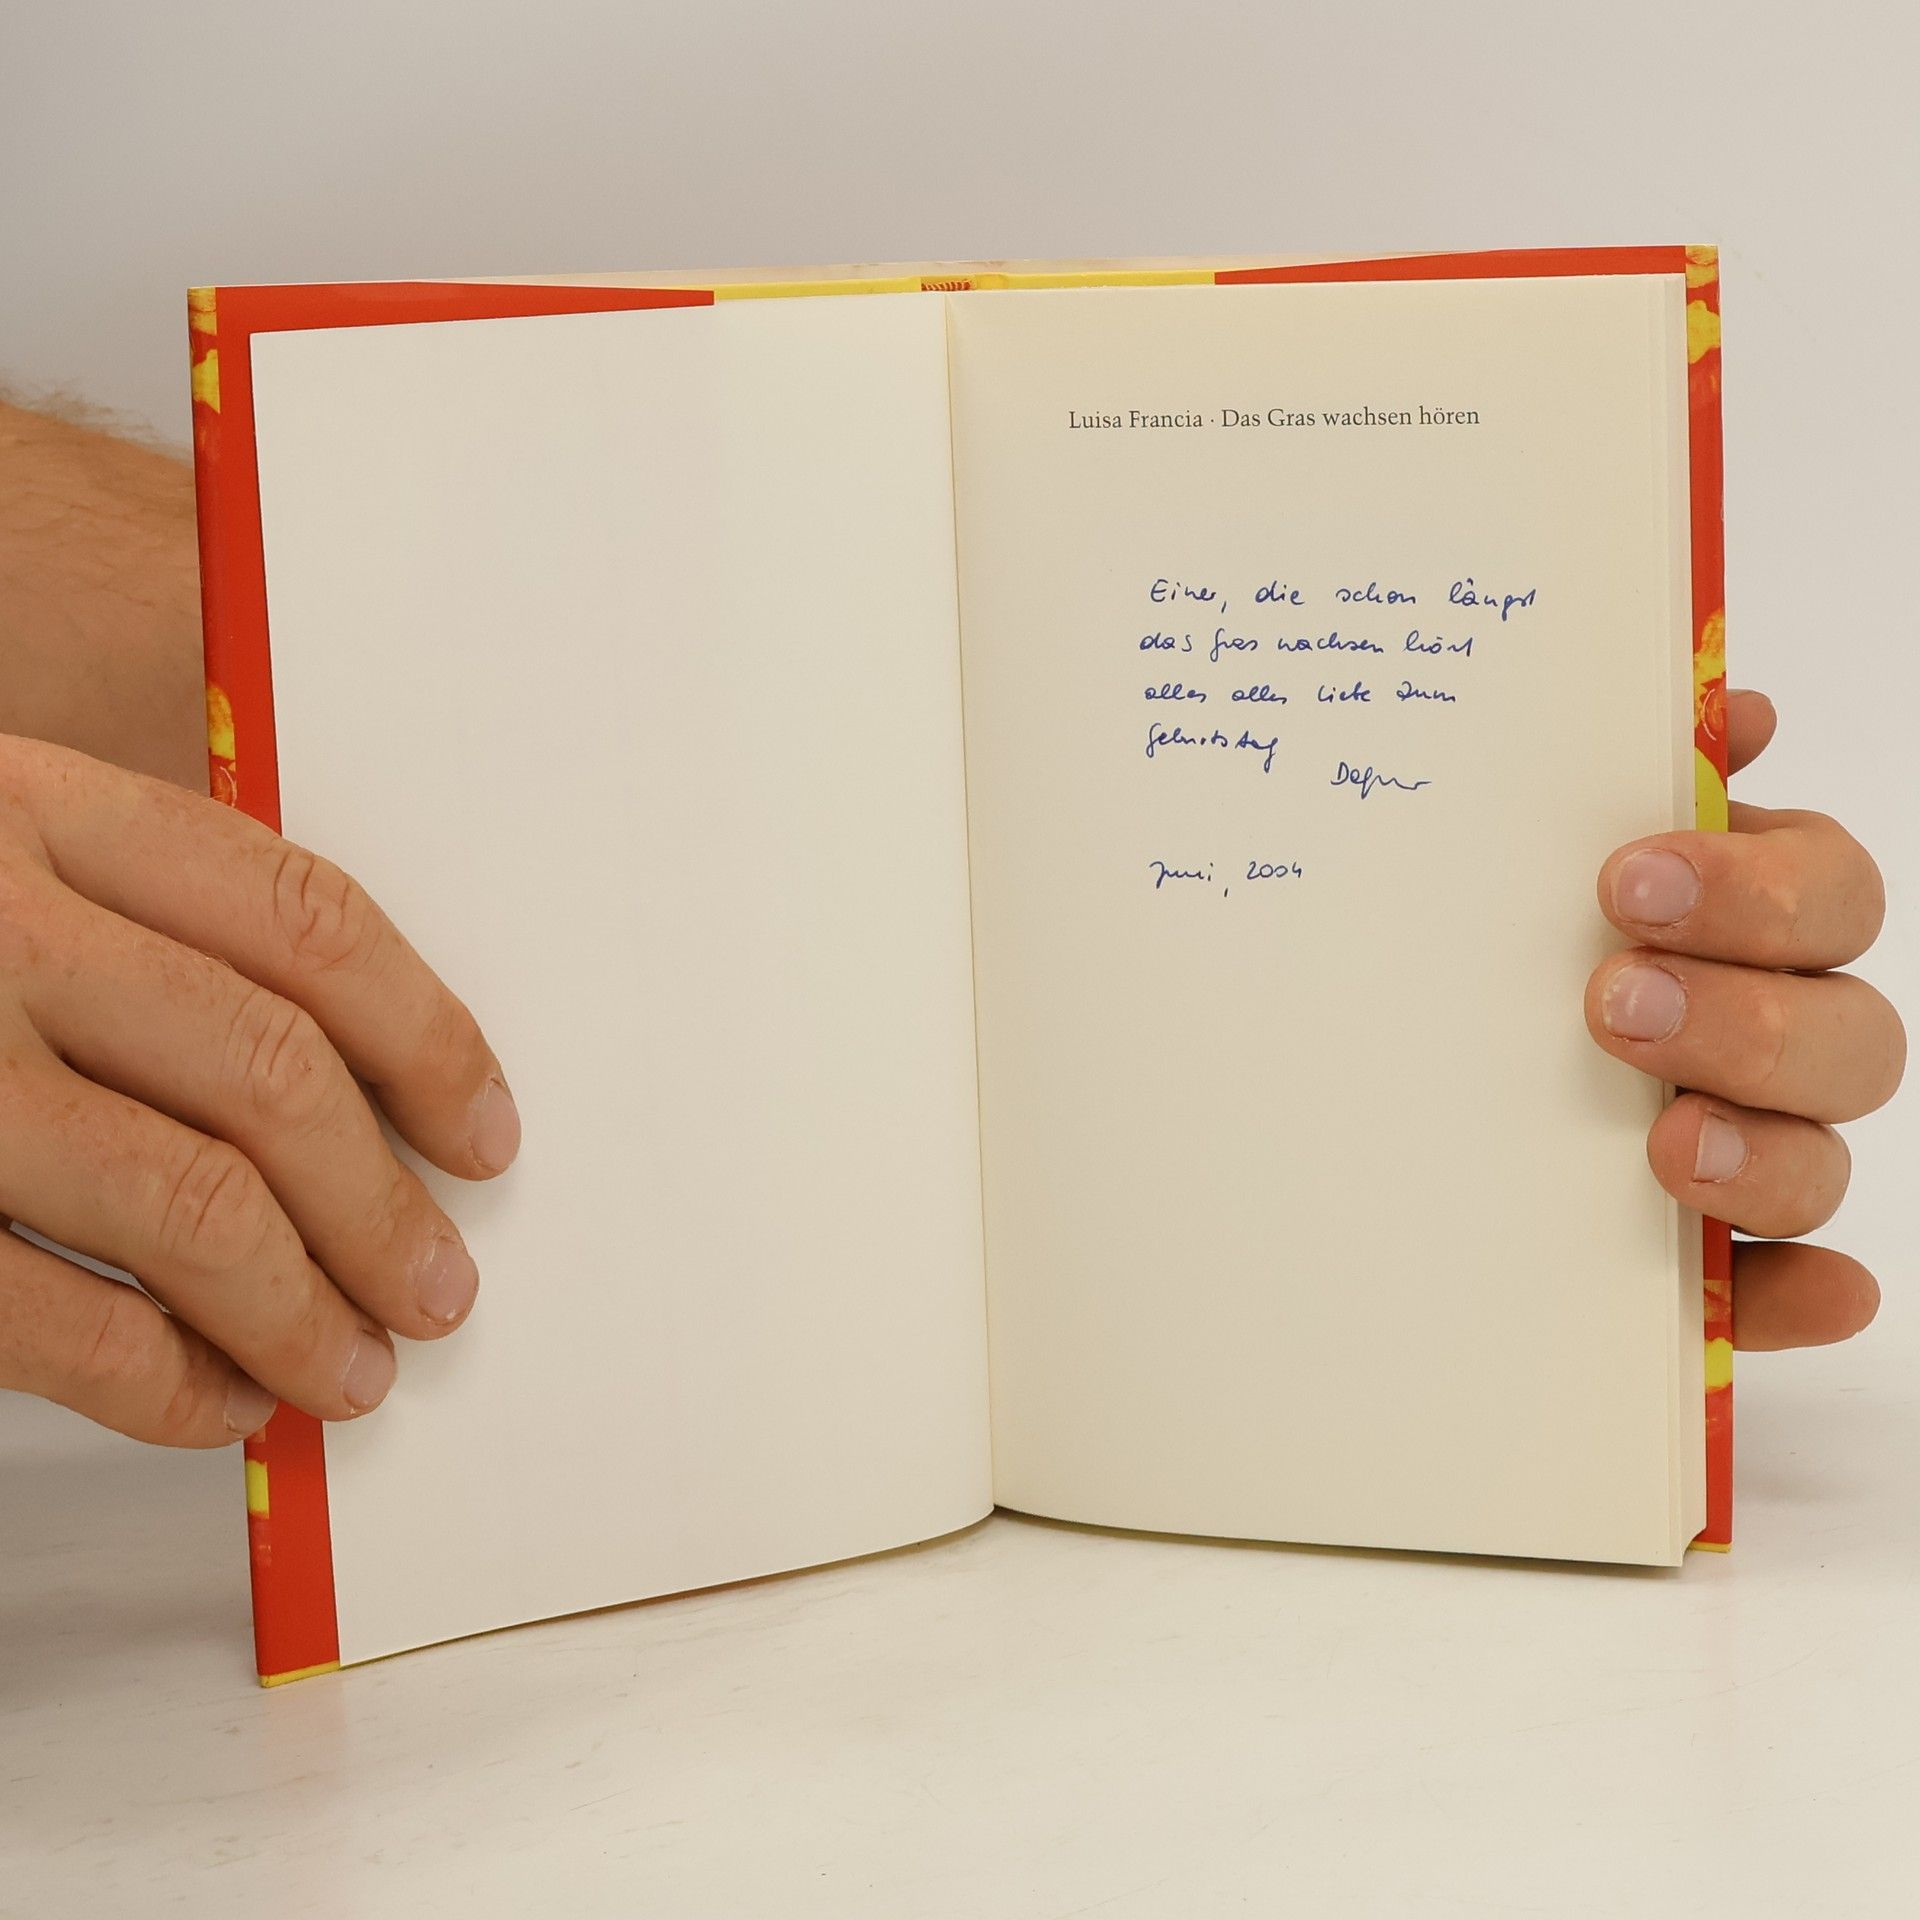 Luisa Francia · Das Gras wachsen hören
Einer, die schon längst
das Gras wachsen hört
alles alles Liebe zum
Geburtstag
Dagmar
Juni, 2004